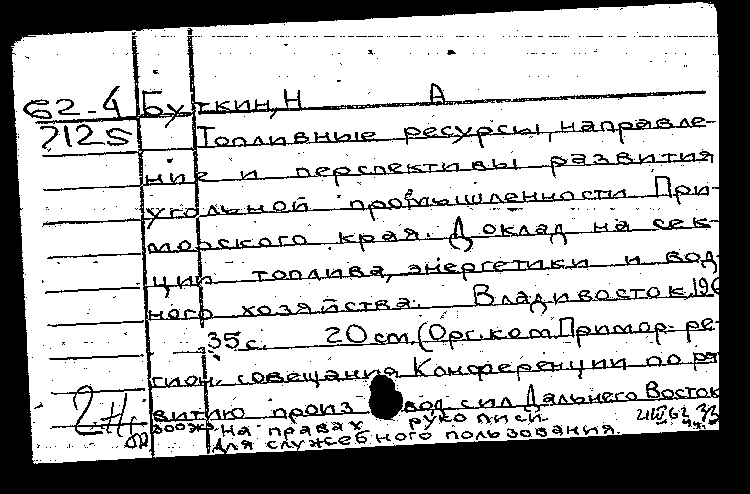 62-4 Буткин, Н А
7125 Топливные ресурсы, направле-
ние и перспективы развития
угольной промышленности При-
морского края. Доклад на сек-
ции топлива, энергетики и вод-
ного хозяйства. Владивосток, 196
35 с. 20 см. (Орг. ком. Примор. ре-
гион. совещания Конференции по раз
витию произвол сил Дальнего Восток
на правах рукописи.
Для служебного пользования.